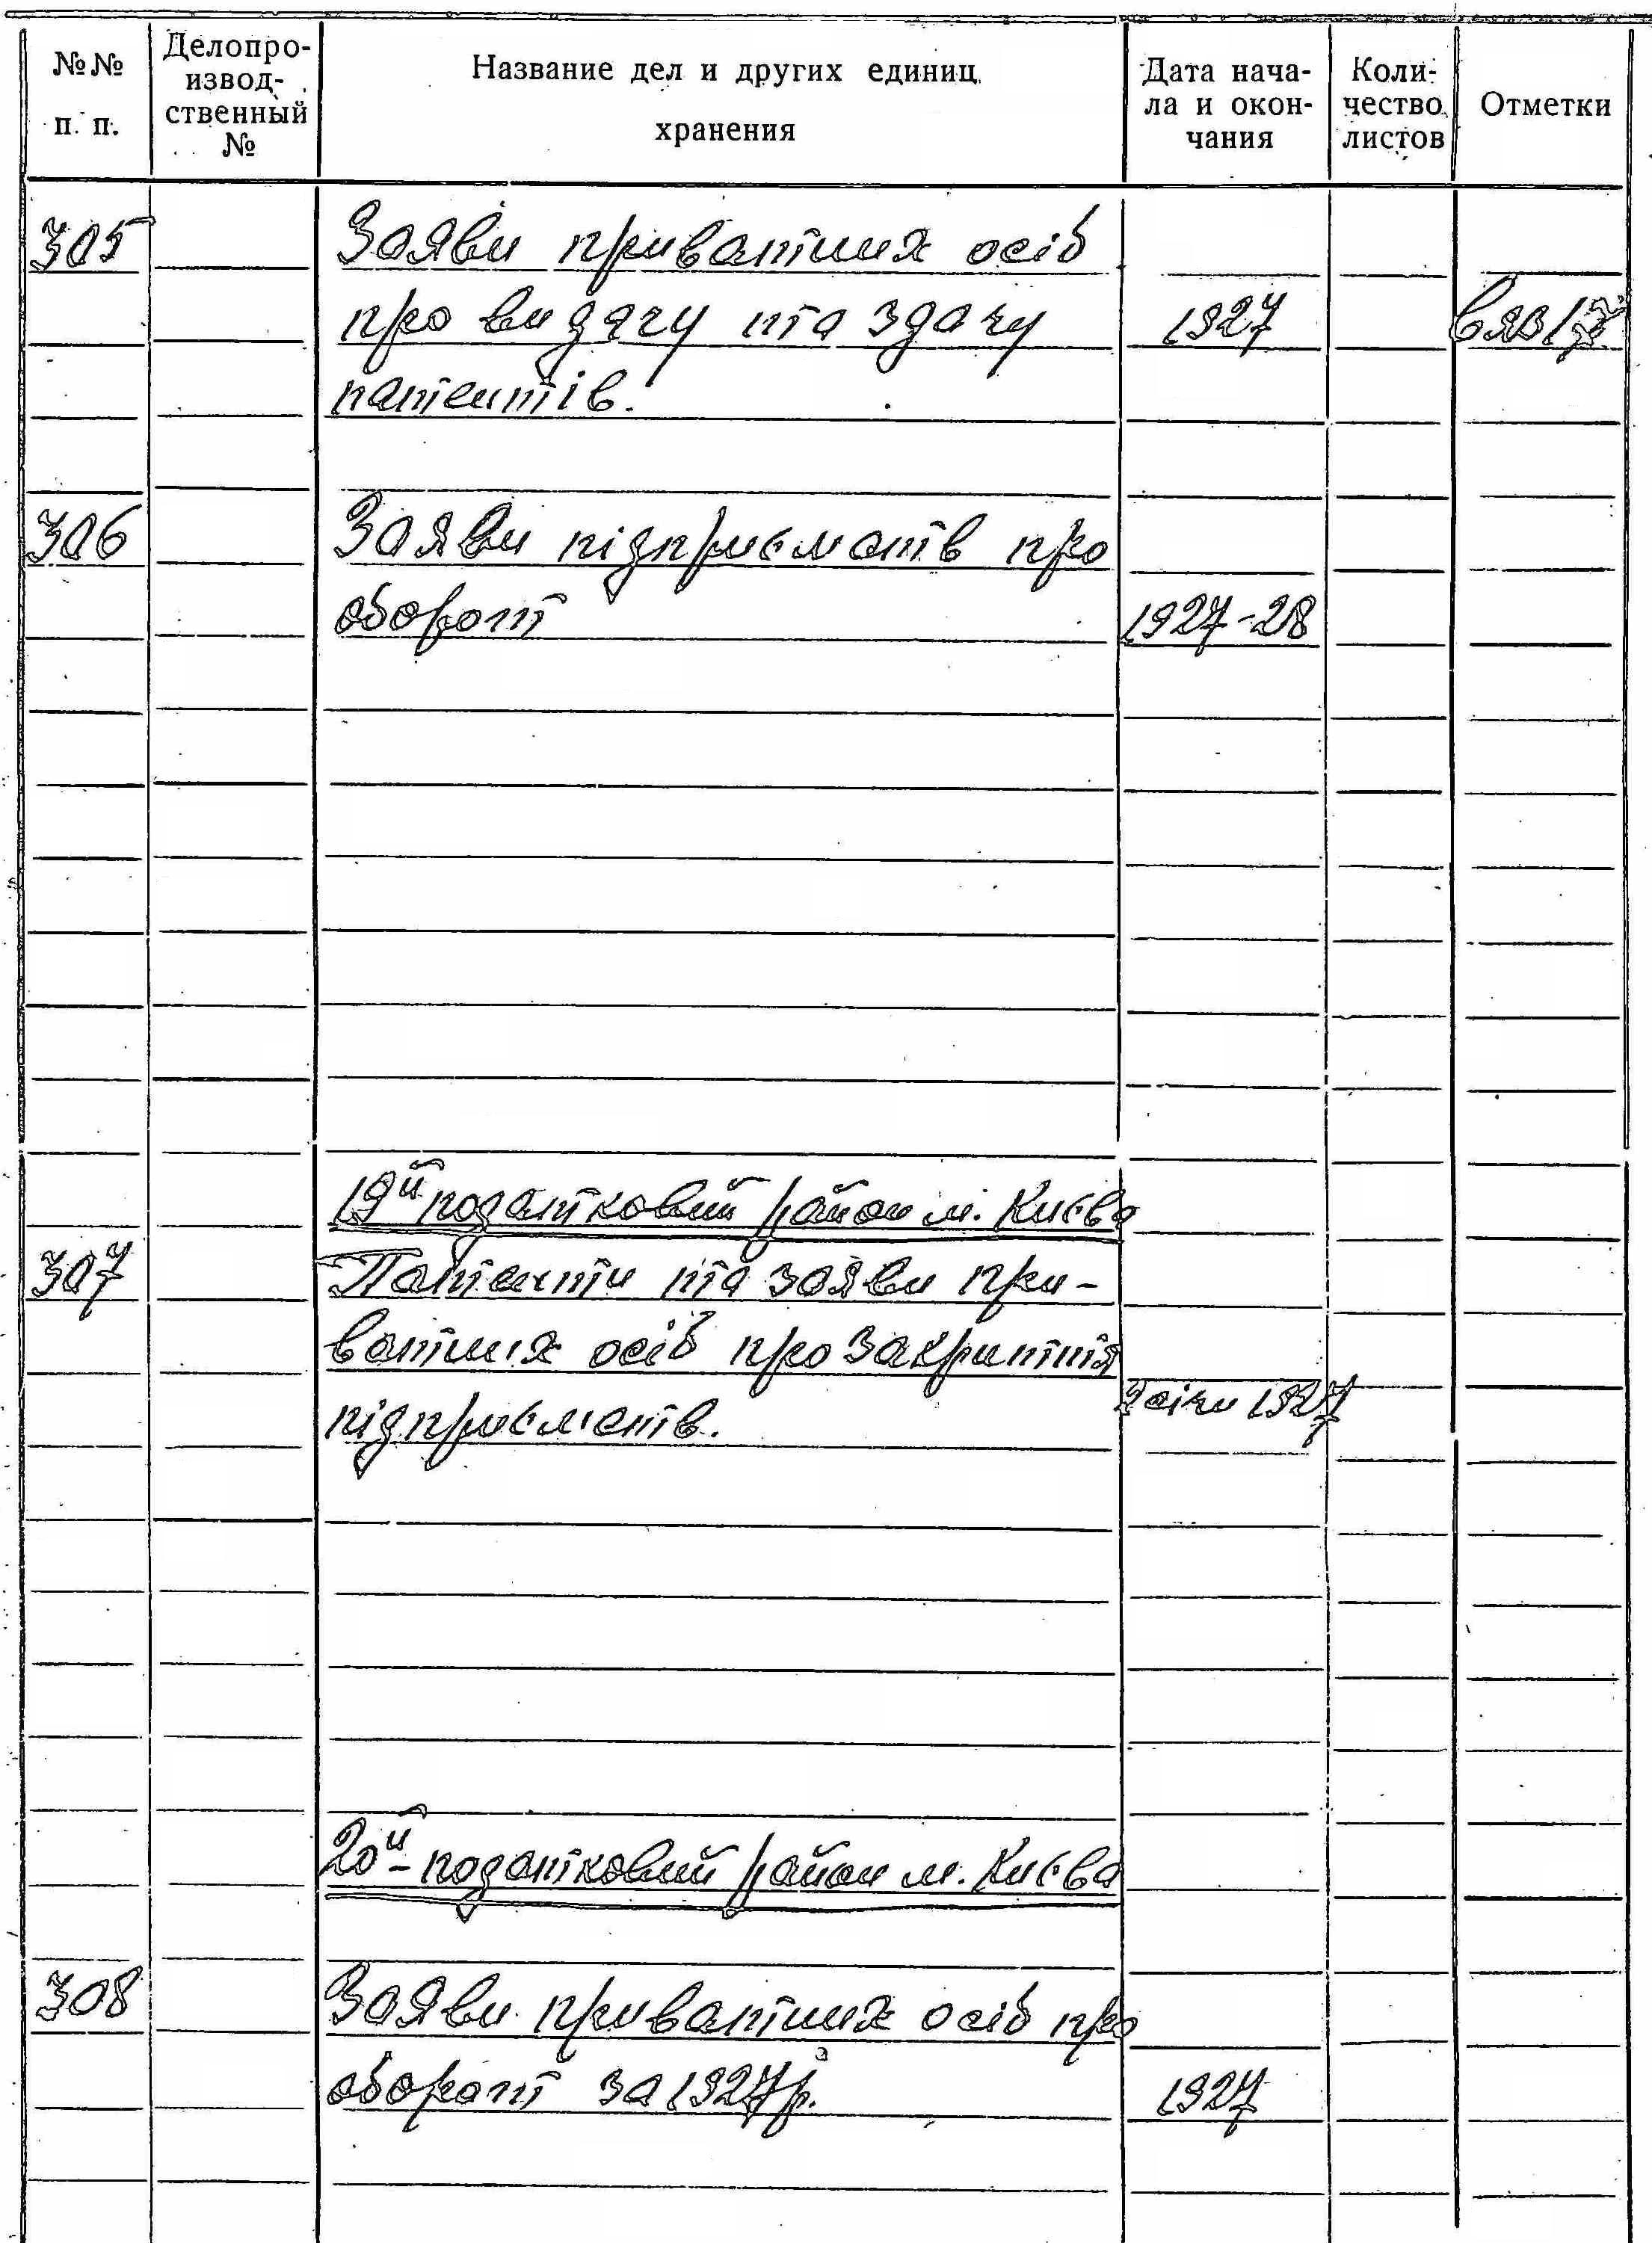 №№ п. п. Делопро-изводственный № Название дел и других единиц хранения Дата начала и окончания Количество листов Отметки
305 Заяви приватних осіб
про видачу та здачу 1927 вяз 17
патентів.
306 Заяви підприємств про
оборот 1927-28
19й податковий район м. Києва
307 Патенти та заяви при-
ватних осіб про закриття
підприємств. 1927
20й - податковий район м. Києва
308 Заяви приватних осіб про
оборот за 1927 р. 1927